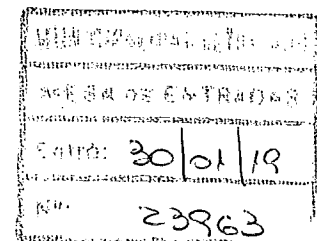 MESA DE ENTRADAS
Entró: 30/01/19
Nº: 23963